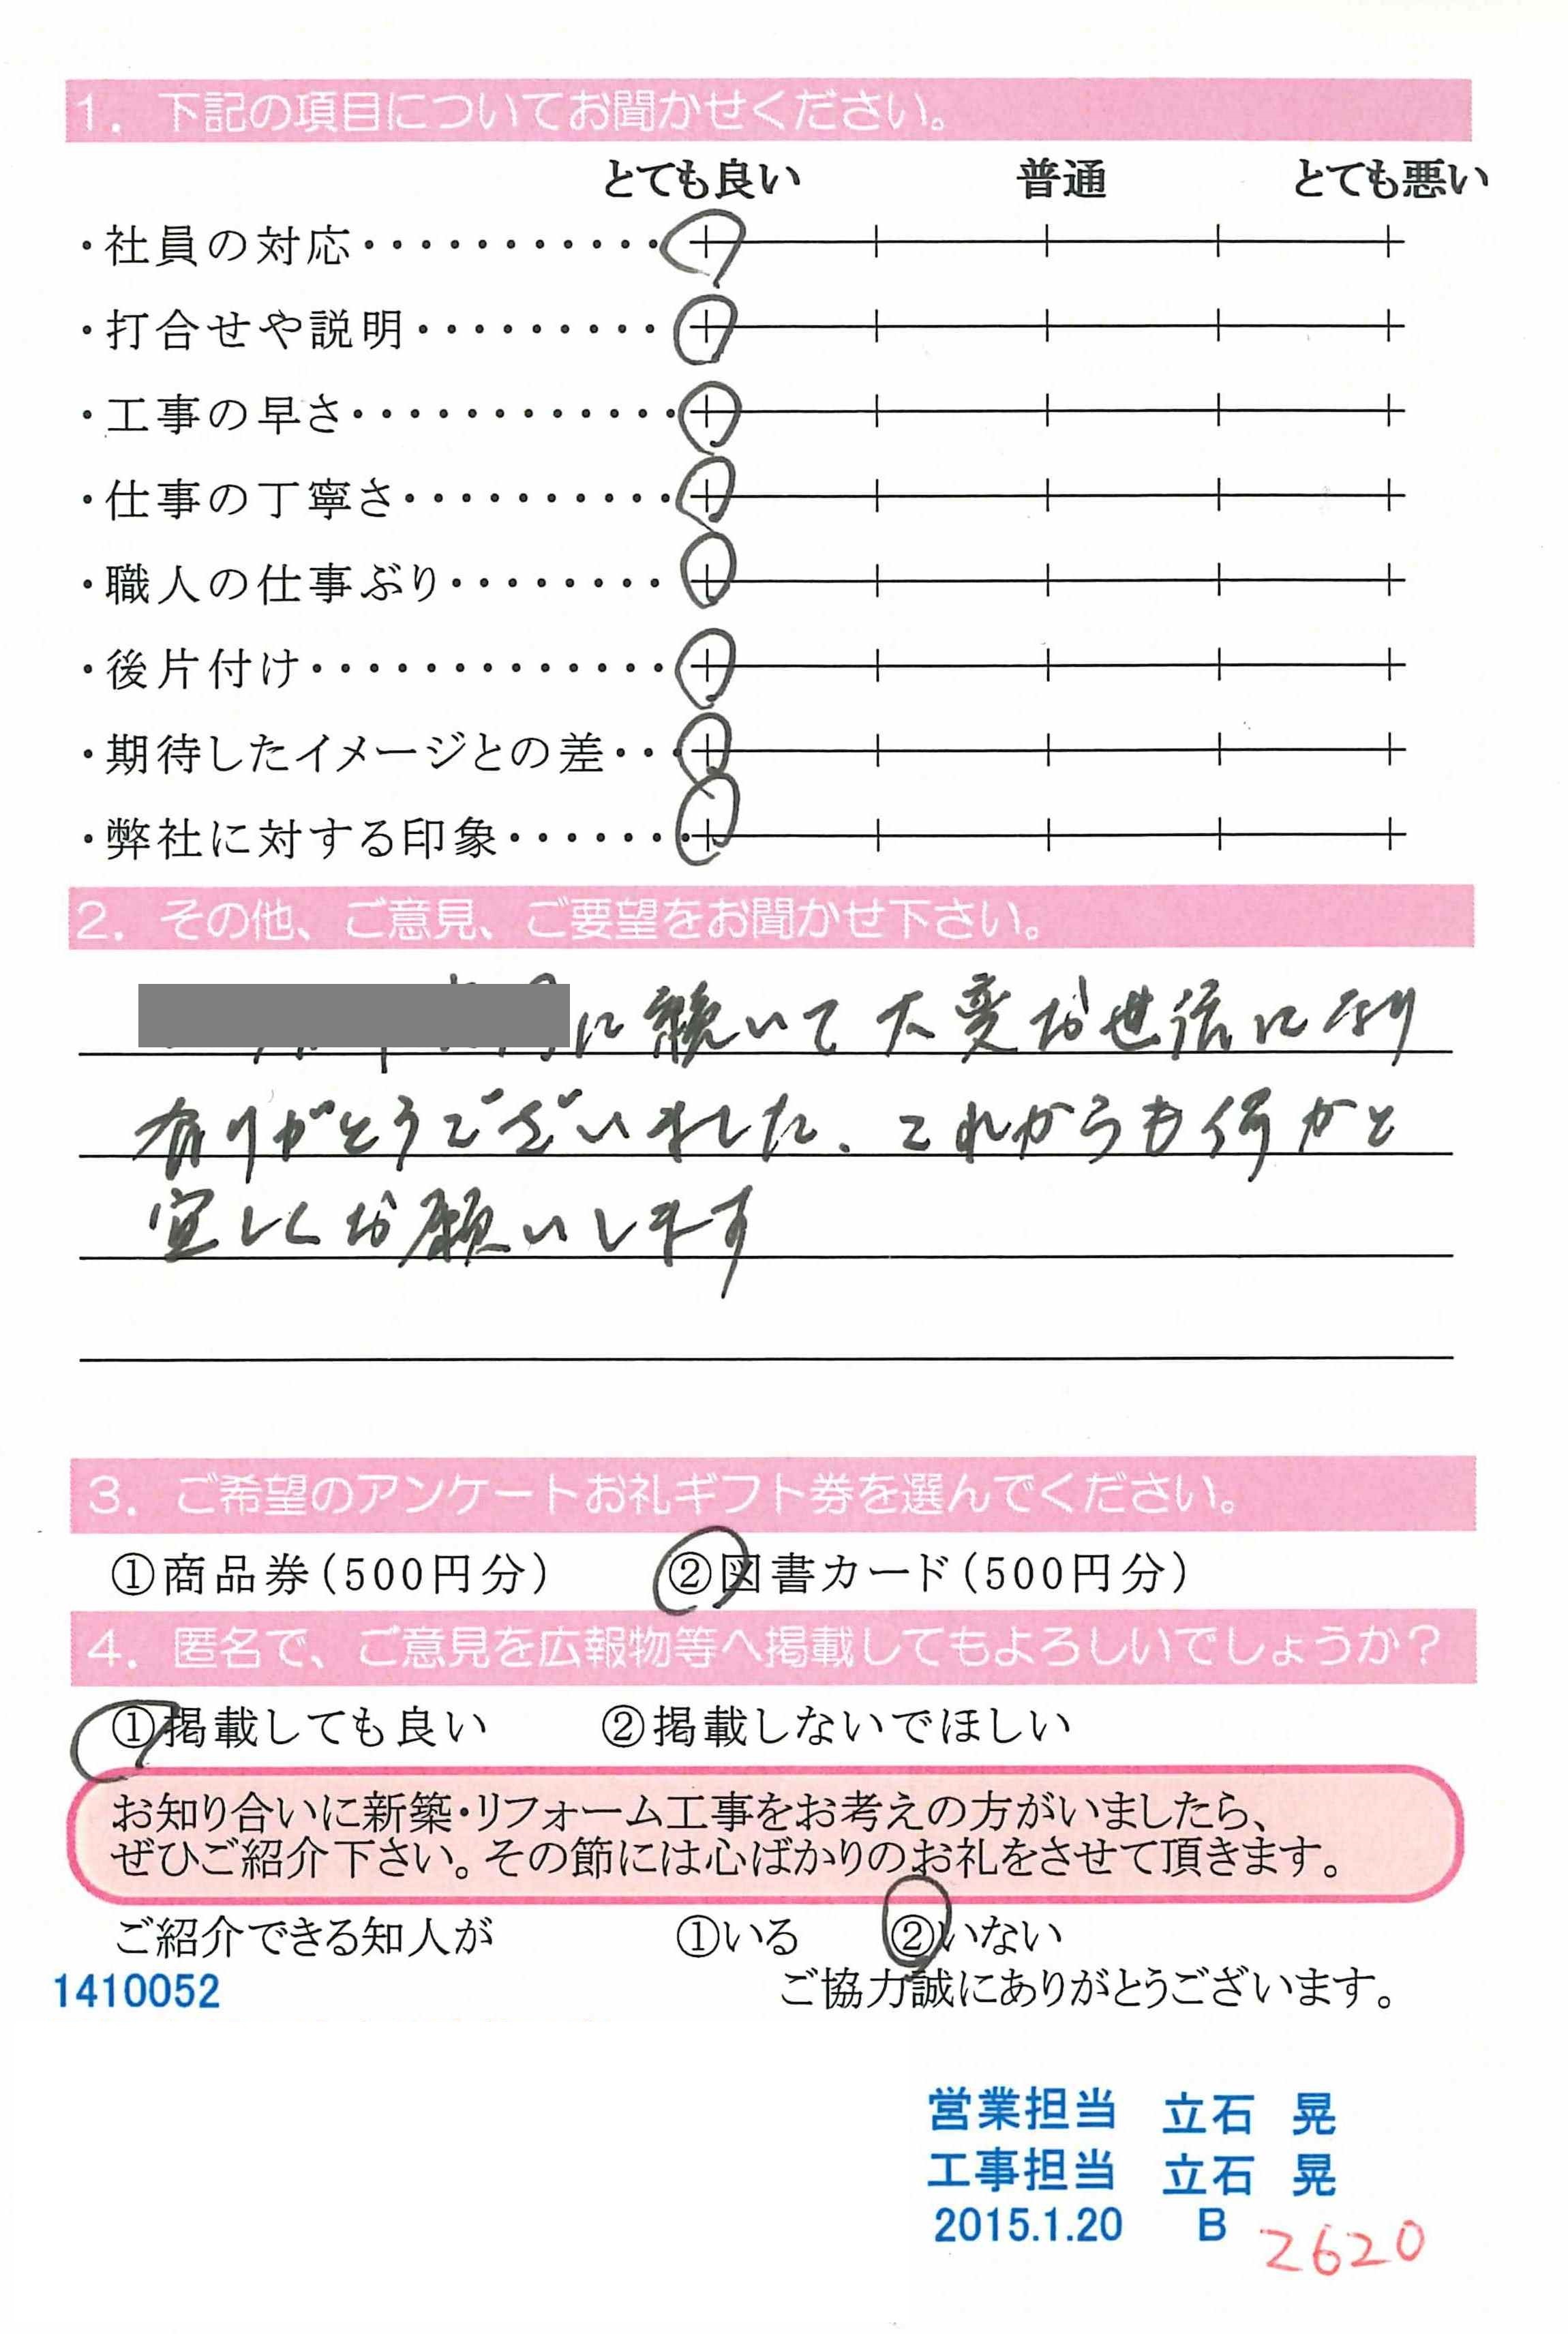 1. 下記の項目についてお聞かせください。
とても良い 普通 とても悪い
・社員の対応・・・・・・・・・・・
・打合せや説明・・・・・・・・・
・工事の早さ・・・・・・・・・・・・
・仕事の丁寧さ・・・・・・・・・・
・職人の仕事ぶり・・・・・・・・
・後片付け・・・・・・・・・・・・・
・期待したイメージとの差・・・
・弊社に対する印象・・・・・・・
2. その他、ご意見、ご要望をお聞かせ下さい。
に続いて大変お世話になり
有りがとうございました、これからも何かと
宜しくお願いします
3. ご希望のアンケートお礼ギフト券を選んでください。
①商品券(500円分) ②図書カード(500円分)
4. 匿名で、ご意見を広報物等へ掲載してもよろしいでしょうか?
①掲載しても良い ②掲載しないでほしい
お知り合いに新築・リフォーム工事をお考えの方がいましたら、
ぜひご紹介下さい。その節には心ばかりのお礼をさせて頂きます。
ご紹介できる知人が ①いる ②いない
1410052 ご協力誠にありがとうございます。
営業担当 立石 晃
工事担当 立石 晃
2015.1.20 B 2620